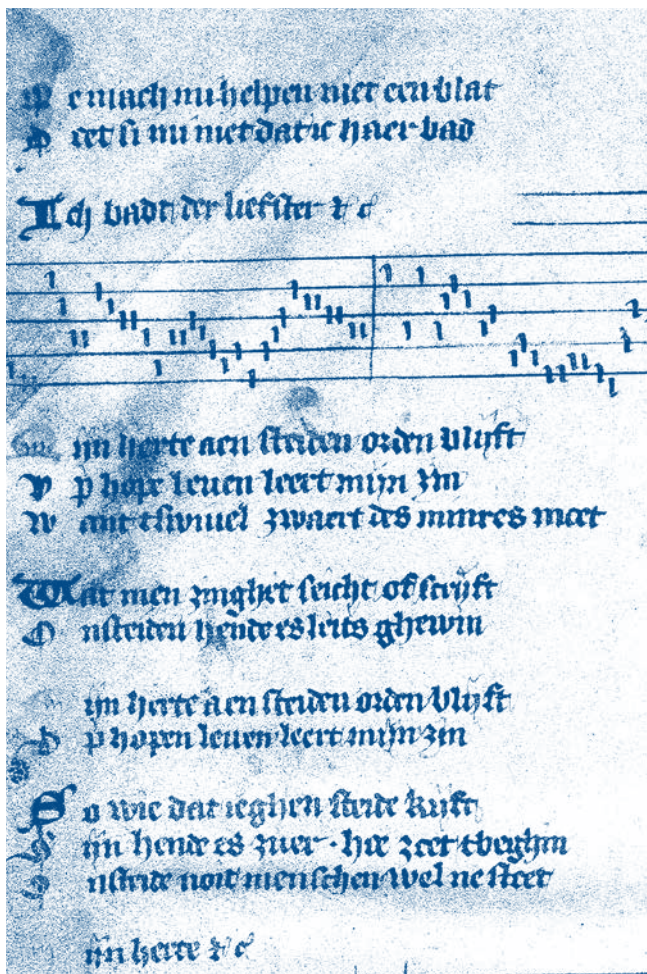 Me mach mi helpen niet een blat
Deet si mi niet dat ic haer bad
Ich badt der liefster & c
Mijn herte aen steiden orden blijft
Vp hope leuen leert mijn zin
Want tswiuel zwaert des minres meet
Wat men zinghet seicht of screift
Onsteiden hende es leits ghewin
Mijn herte aen steiden orden blijft
Vp hopen leuen leert mijn zin
So wie dat ieghen steide kijft
Zijn hende es zuer · hoe zeet tbeghin
Onsteide noit menschen wel ne steet
Mijn herte & c